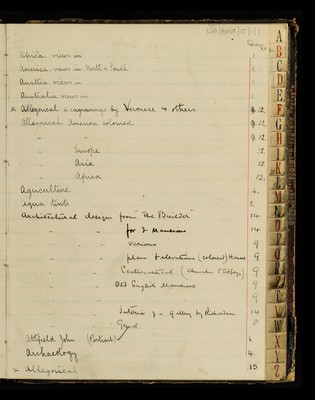 Africa views in 1
America views in North & South 1
Austria views in 1
Australia views in 1
x Allegorical engravings by Veronese & others 9.12
Allegorical America colored 9.12
" " 9.12
" Europe 12
" Asia 12
" Africa 12
Agriculture 4.
Aqua tints 5.
Architectural designs from "The Builder" 14.
" " for Mansions 14
" " " various 9
" " plans & elevations (colored) Houses 9
" " Ecclesiastical (Churches & Abbeys) 9
" " Old English Mansions 9
9
" " Interior of a Gallery by Richardson 14
Greek 8
Attfield John (Portrait)
Archaeology 4
x Allegorical 15
A
B
C
D
E
F
G
H
I
K
L
M
N
O
P
Q
R
S
T
U
V
W
X
Y
Z